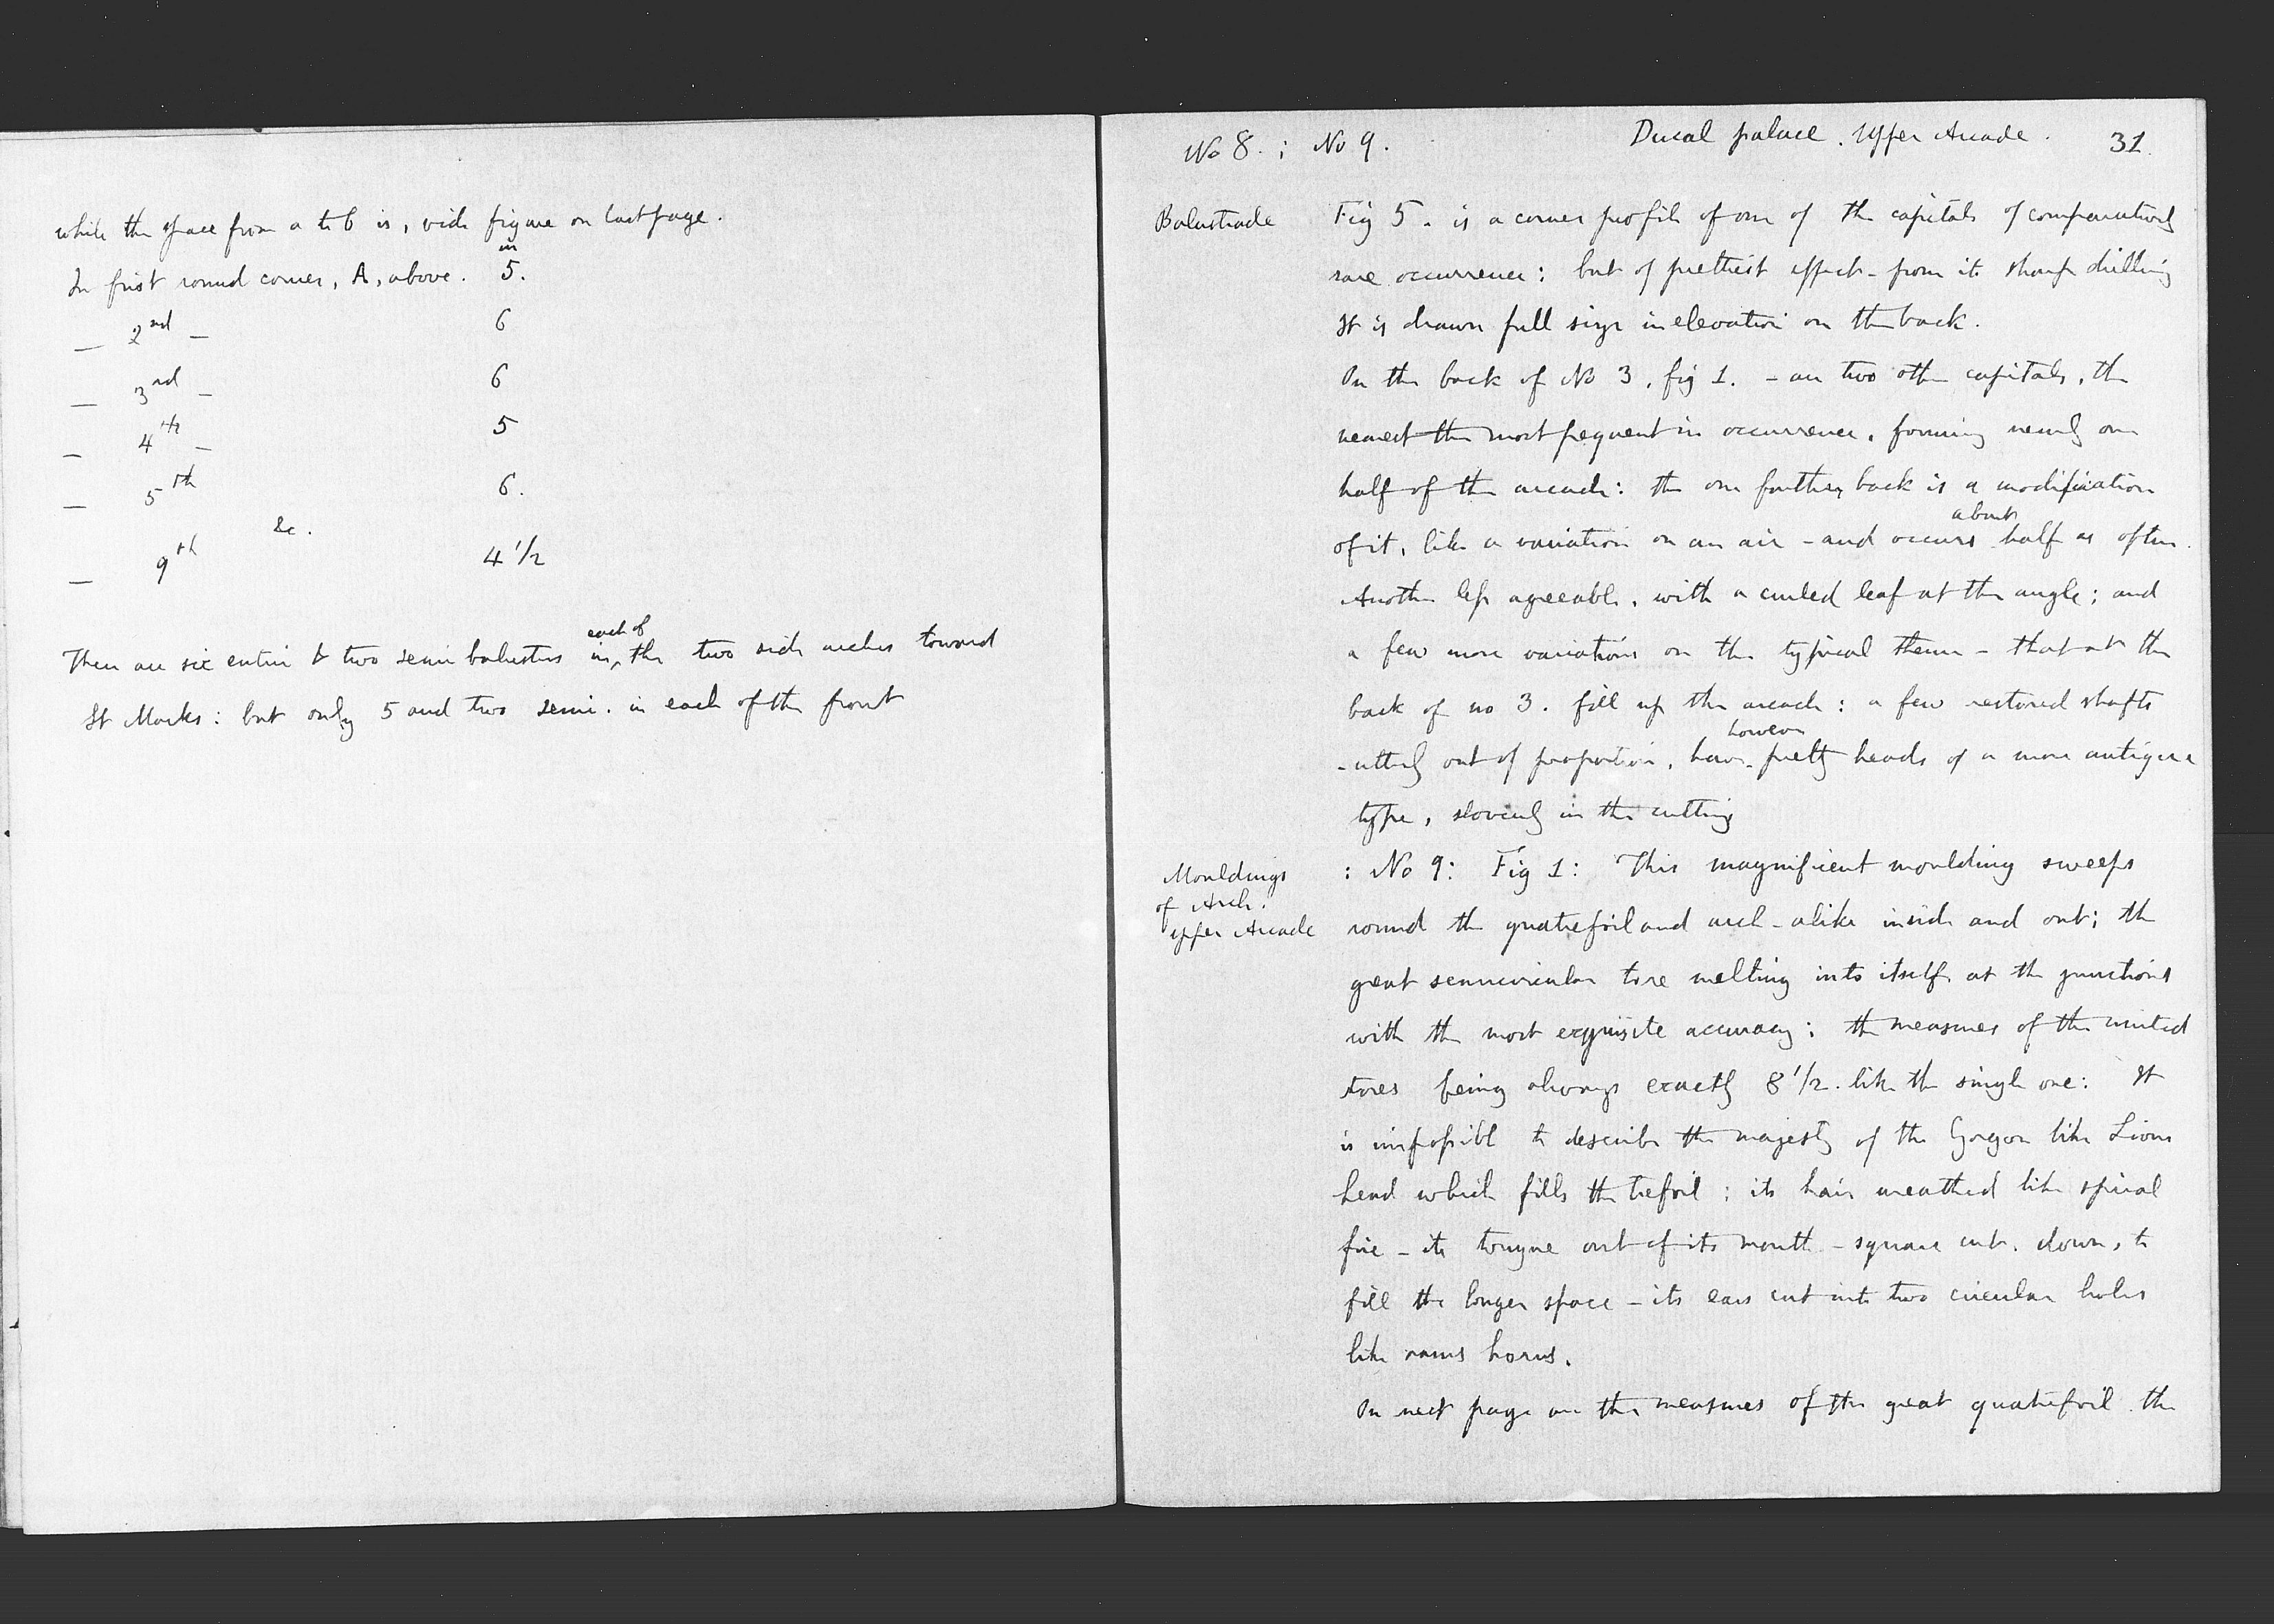 while the space from a to b is, vide figure on last page.
in
In first round corner, A, above. 5.
— 2nd — 6
— 3rd — 6
— 4th — 5
— 5th 6.
&c.
— 9th 4 1/2
each of
There are six entire & two semi balusters in, the two side arches toward
St Marks: but only 5 and two semi. in each of the front
No 8. ; No 9.
Ducal palace. Upper Arcade. 31.
Balustrade
Fig 5. is a corner profile of one of the capitals of comparatively
rare occurrence: but of prettiest effect - from its sharp drilling
It is drawn full size in elevation on the back.
On the back of No 3, fig 1. - are two other capitals, the
nearest the most frequent in occurrence, forming nearly one
half of the arcade: the one farther back is a modification
about
of it, like a variation on an air - and occurs half as often.
Another less agreeable, with a curled leaf at the angle; and
a few more variations on the typical theme - that at the
back of no 3. fill up the arcade: a few restored shafts
however
- utterly out of proportion, have pretty heads of a more antique
type, slovenly in the cutting
Mouldings
of Arch.
upper Arcade
: No 9: Fig 1: This magnificent moulding sweeps
round the quatrefoil and arch - alike inside and out; the
great semicircular tore melting into itself at the junctions
with the most exquisite accuracy; the measures of the united
tores being always exactly 8 1/2. like the single one: It
is impossible to describe the majesty of the Gorgon like Lions
head which fills the trefoil; its hair wreathed like spiral
fire - its tongue out of its mouth - square cut. down, to
fill the longer space - its ears cut into two circular holes
like rams horns.
On next page are the measures of the great quatrefoil the